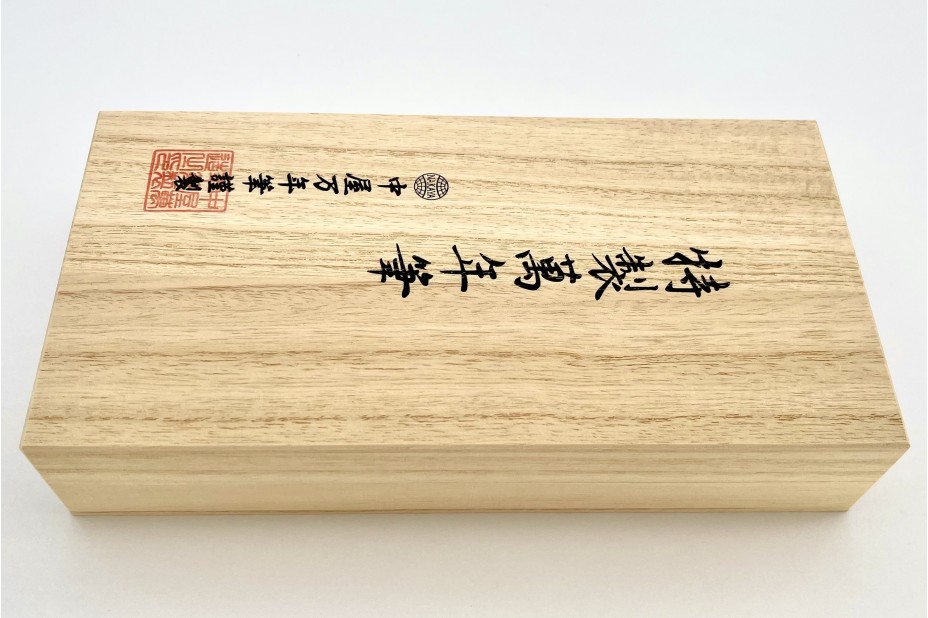 特製萬年筆
中屋万年筆謹製
NAKAYA